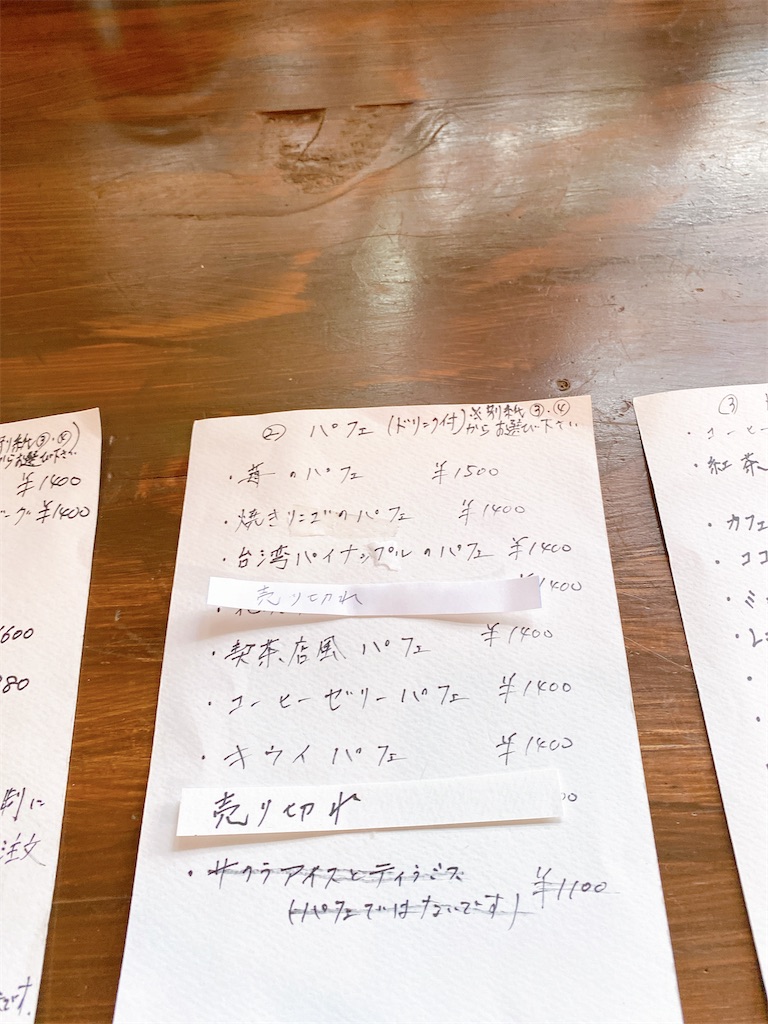 別紙③・④)
からお選び下さい
¥1400
ーグ ¥1400
600
80
制に
注文
です。
② パフェ (ドリンク付) ※別紙③・④
からお選び下さい
・苺のパフェ ¥1500
・焼きリンゴのパフェ ¥1400
・台湾パイナップルのパフェ ¥1400
売り切れ ¥1400
・喫茶店風パフェ ¥1400
・コーヒーゼリーパフェ ¥1400
・キウイパフェ ¥1400
売り切れ 00
・サクラアイスとティラミス ¥1100
(パフェではないです)
③
・コーヒー
・紅茶
・カフェ
・ココ
・ミ
・レ